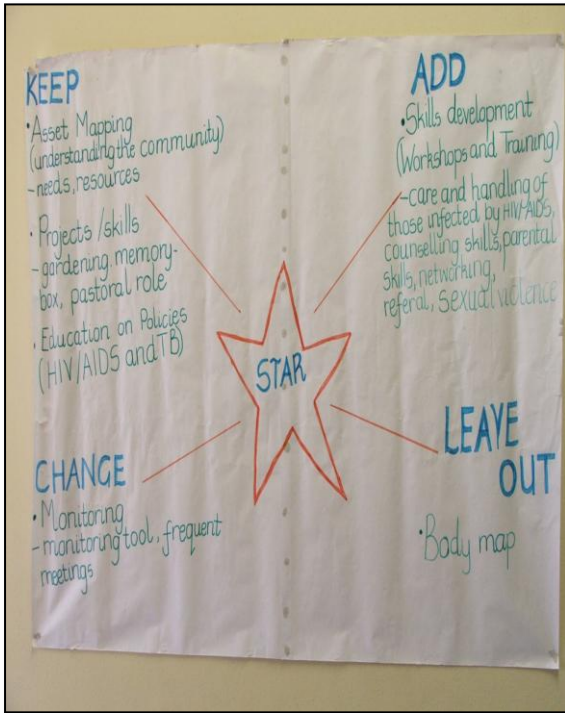 KEEP
• Asset Mapping
(understanding the community)
- needs, resources
• Projects / skills
- gardening, memory-
box, pastoral role
• Education on Policies
(HIV/AIDS and TB)
ADD
• Skills development
(Workshops and Training)
- care and handling of
those infected by HIV/AIDS,
counselling skills, parental
skills, networking,
referal, sexual violence
STAR
CHANGE
• Monitoring
- monitoring tool, frequent
meetings
LEAVE
OUT
• Body map